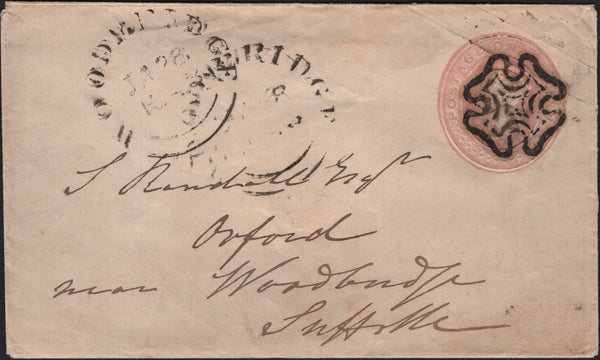 WOODBRIDGE
JA 28
POSTAGE
S Randall Esqr
Orford
near Woodbridge
Suffolk